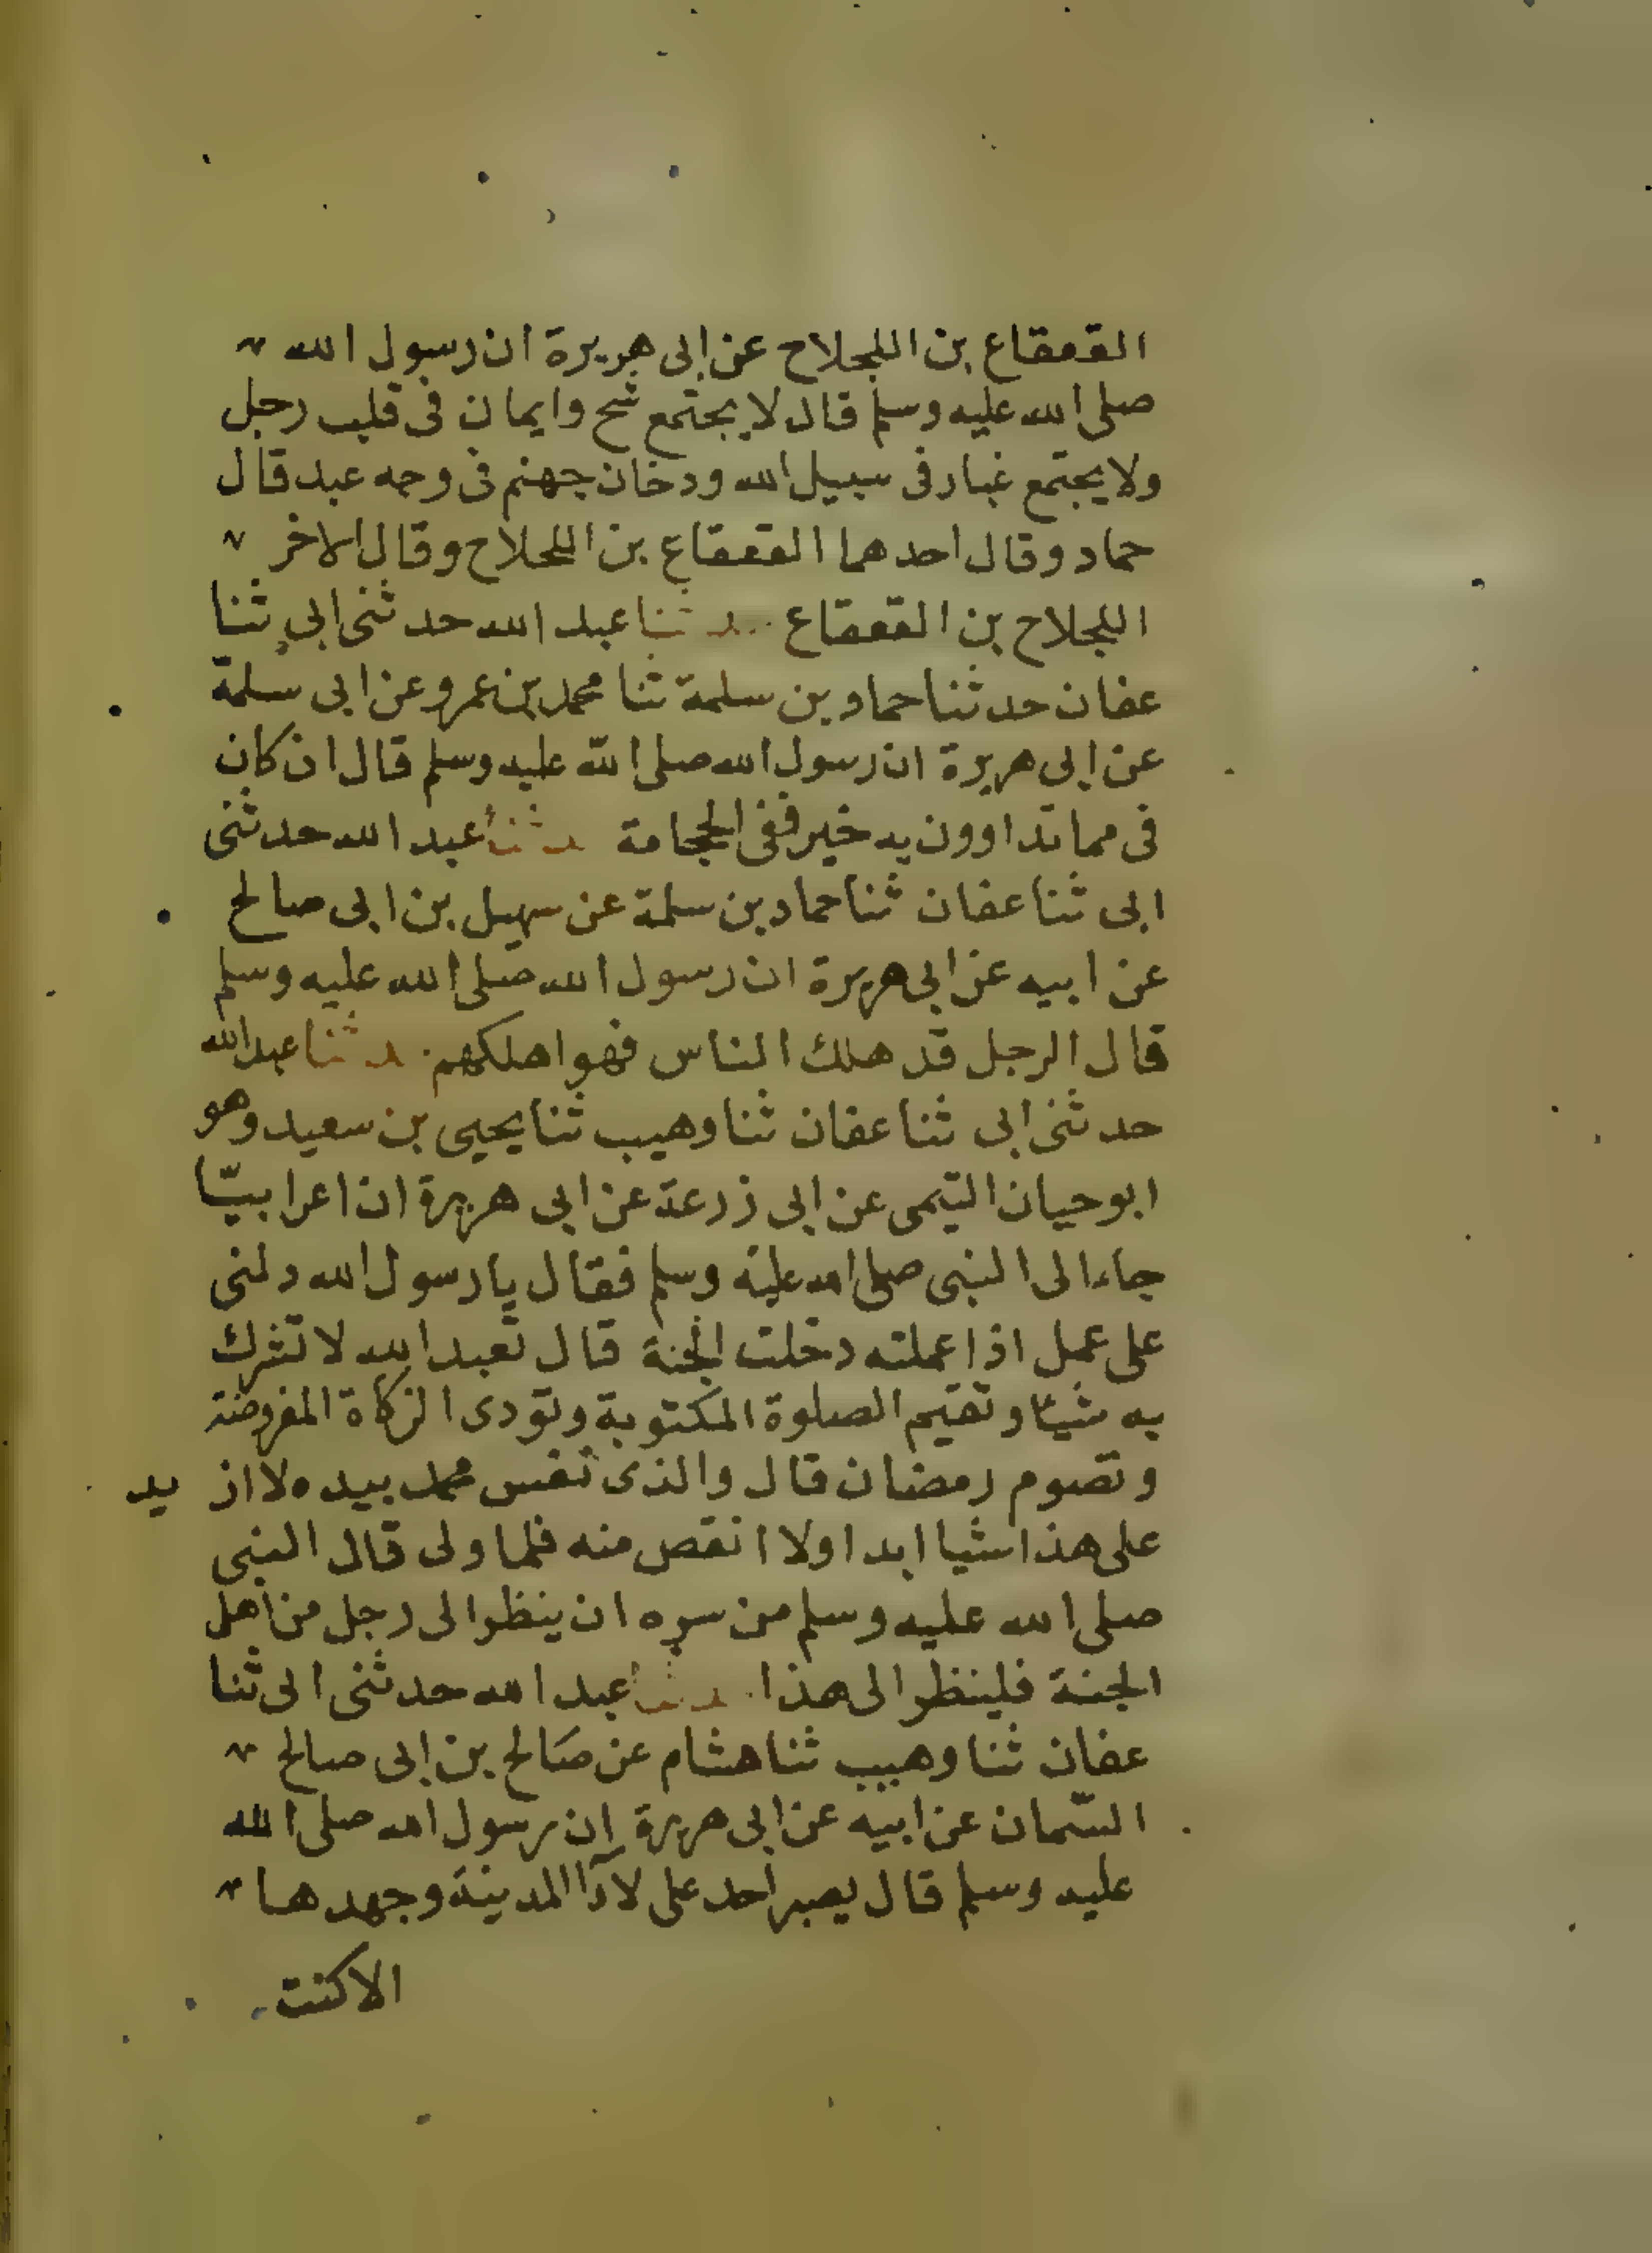 القعقاع بن اللجلاج عن ابى هريرة ان رسول الله
صلى الله عليه وسلم قال لا يجتمع شح وايمان فى قلب رجل
ولا يجتمع غبار فى سبيل الله ودخان جهنم فى وجه عبد قال
حماد وقال احدهما القعقاع بن اللجلاج وقال الاخر
اللجلاج بن القعقاع حدثنا عبد الله حدثنى ابى ثنا
عفان حدثنا حماد بن سلمة ثنا محمد بن عمرو عن ابى سلمة
عن ابى هريرة ان رسول الله صلى الله عليه وسلم قال ان كان
فى مما تداوون به خير ففى الحجامة حدثنا عبد الله حدثنى
ابى ثنا عفان ثنا حماد بن سلمة عن سهيل بن ابى صالح
عن ابيه عن ابى هريرة ان رسول الله صلى الله عليه وسلم
قال الرجل قد هلك الناس فهو اهلكهم حدثنا عبد الله
حدثنى ابى ثنا عفان ثنا وهيب ثنا يحيى بن سعيد وهو
ابو حيان التيمى عن ابى زرعة عن ابى هريرة ان اعرابيّا
جاء الى النبى صلى الله عليه وسلم فقال يا رسول الله دلنى
على عمل اذا عملته دخلت الجنة قال تعبد الله لا تشرك
به شيئا وتقيم الصلوة المكتوبة وتودى الزكاة المفروضة
وتصوم رمضان قال والذى نفس محمد بيده لا ازيد
على هذا شيا ابدا ولا انقص منه فلما ولى قال النبى
صلى الله عليه وسلم من سره ان ينظر الى رجل من اهل
الجنة فلينظر الى هذا حدثنا عبد الله حدثنى ابى ثنا
عفان ثنا وهيب ثنا هشام عن صالح بن ابى صالح
السّمان عن ابيه عن ابى هريرة ان رسول الله صلى الله
عليه وسلم قال يصبر احد على لآوا المدينة وجهدها
الا كنت